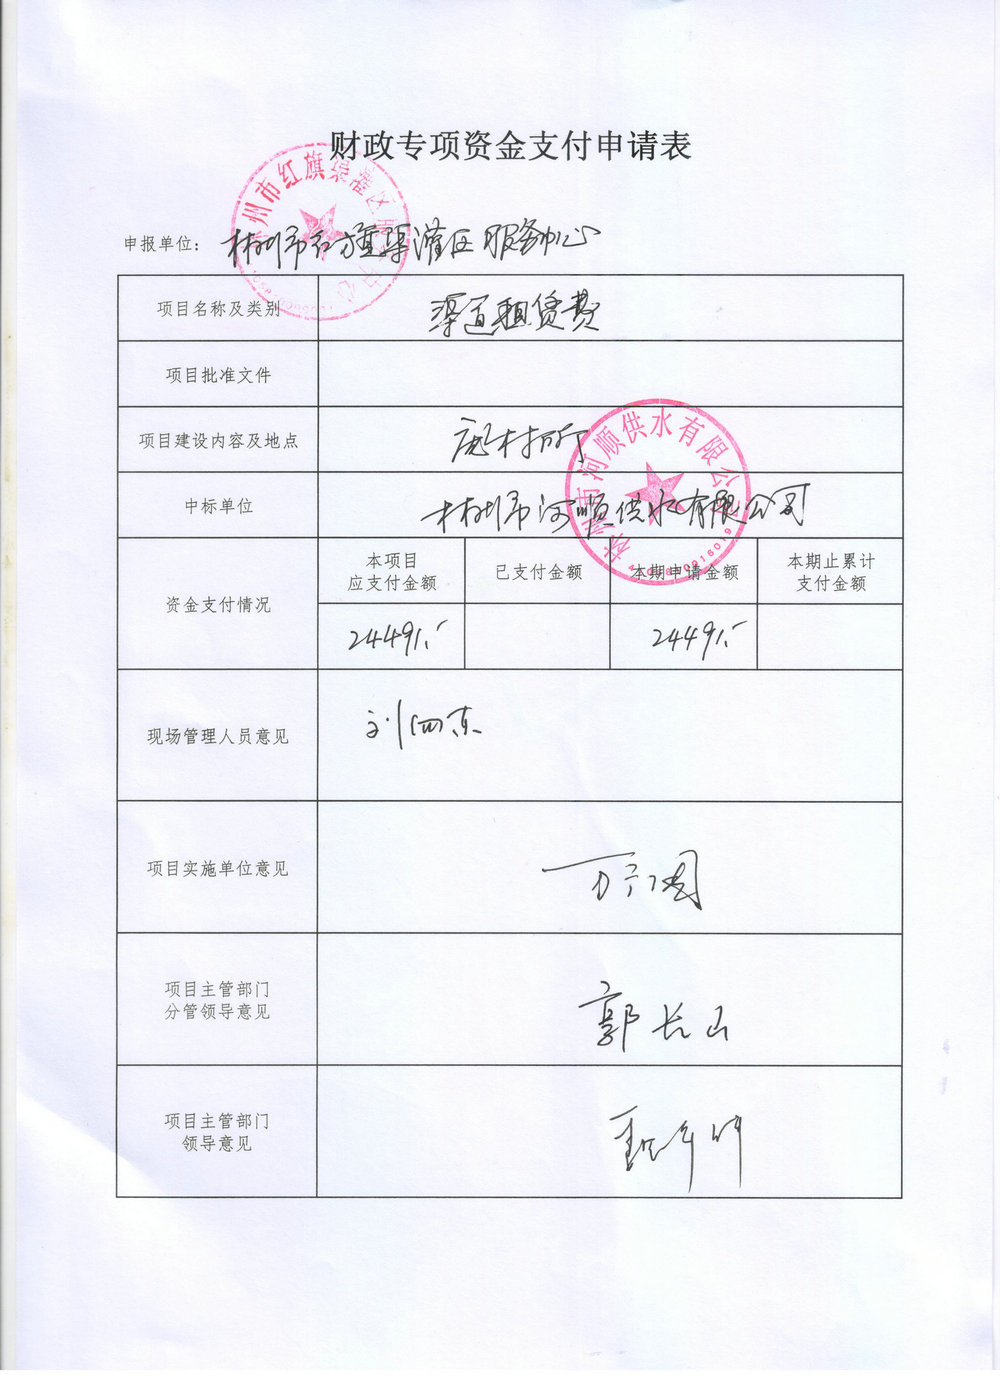 财政专项资金支付申请表
申报单位：林州市红旗渠灌区服务中心
项目名称及类别 渠道租赁费
项目批准文件
项目建设内容及地点
中标单位 林州市河顺供水有限公司
资金支付情况
本项目
应支付金额
已支付金额
本期申请金额
本期止累计
支付金额
24491.-
24491.-
现场管理人员意见
项目实施单位意见
项目主管部门
分管领导意见
郭长山
项目主管部门
领导意见
林州市红旗渠灌区服务中心
林州市河顺供水有限公司